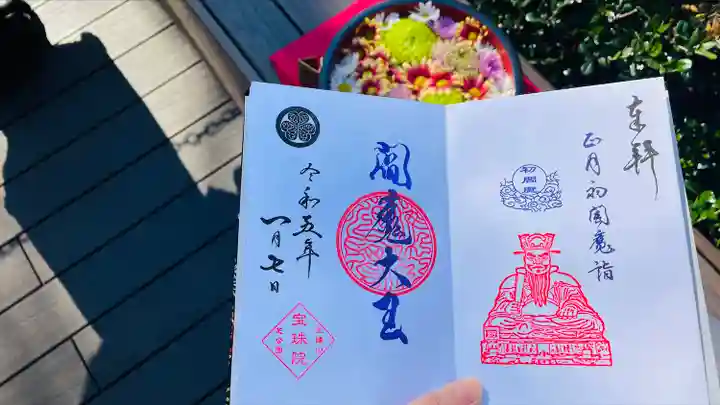 奉拝
正月初閻魔詣
初閻魔
閻魔大王
令和五年
一月七日
三縁山
宝珠院
芝公園